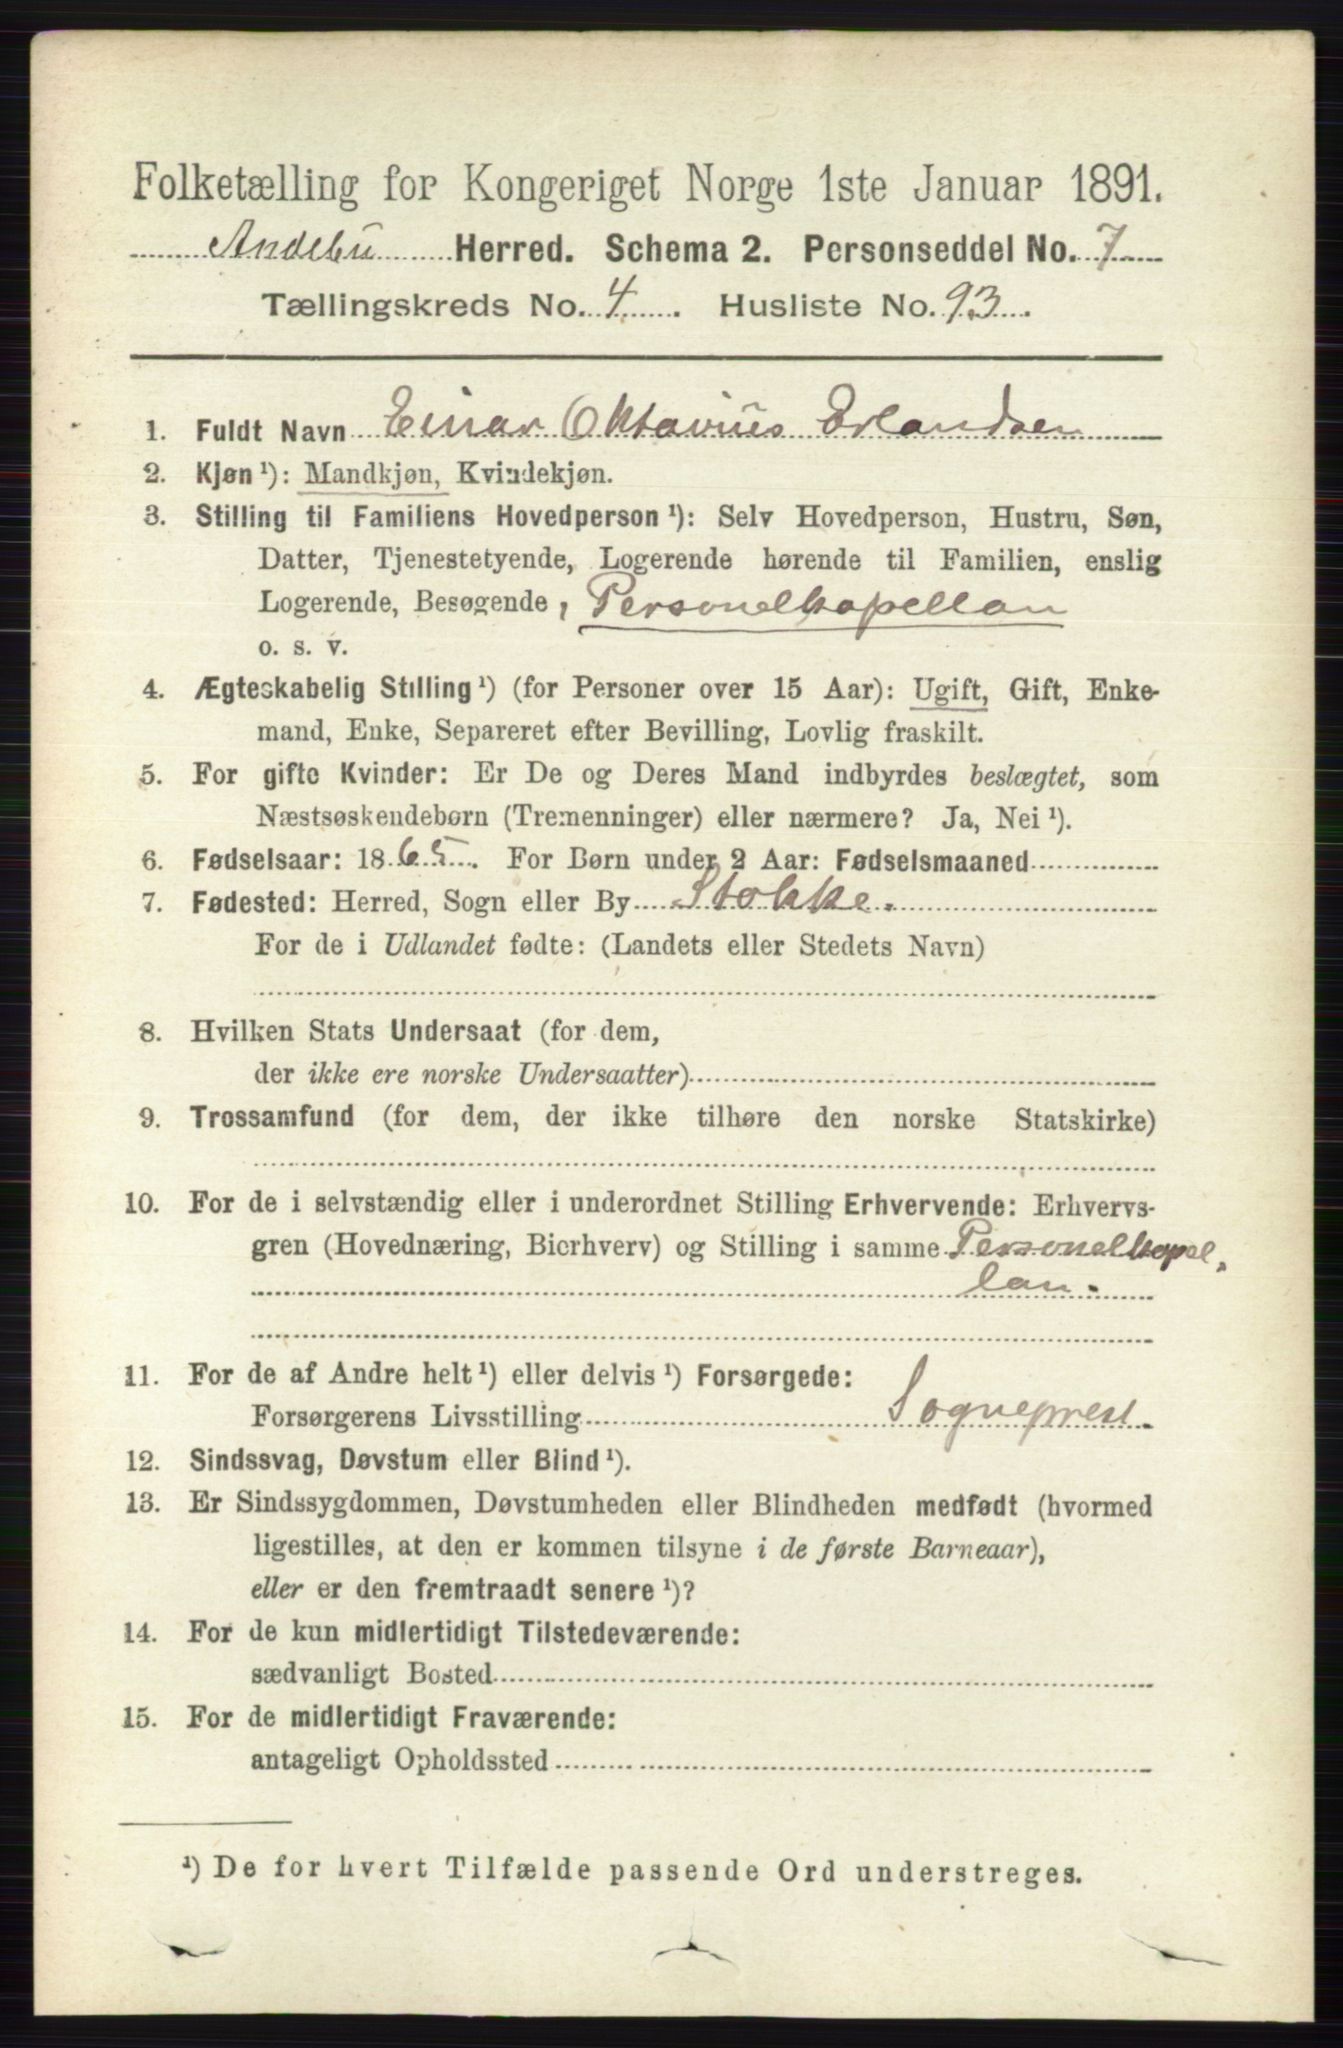 Folketælling for Kongeriget Norge 1ste Januar 1891.
Andebu Herred. Schema 2. Personseddel No. 7
Tællingskreds No. 4. Husliste No. 93.
1. Fuldt Navn Einar Oktavius Erlandsen
2. Kjøn¹): Mandkjøn, Kvindekjøn.
3. Stilling til Familiens Hovedperson¹): Selv Hovedperson, Hustru, Søn,
Datter, Tjenestetyende, Logerende hørende til Familien, enslig
Logerende, Besøgende, Personelkapellan
o. s. v.
4. Ægteskabelig Stilling¹) (for Personer over 15 Aar): Ugift, Gift, Enke-
mand, Enke, Separeret efter Bevilling, Lovlig fraskilt.
5. For gifte Kvinder: Er De og Deres Mand indbyrdes beslægtet, som
Næstsøskendebørn (Tremenninger) eller nærmere? Ja, Nei¹).
6. Fødselsaar: 1865. For Børn under 2 Aar: Fødselsmaaned
7. Fødested: Herred, Sogn eller By Stokke.
For de i Udlandet fødte: (Landets eller Stedets Navn)
8. Hvilken Stats Undersaat (for dem,
der ikke ere norske Undersaatter)
9. Trossamfund (for dem, der ikke tilhøre den norske Statskirke)
10. For de i selvstændig eller i underordnet Stilling Erhvervende: Erhvervs-
gren (Hovednæring, Bierhverv) og Stilling i samme Personelkapel-
lan.
11. For de af Andre helt¹) eller delvis¹) Forsørgede:
Forsørgerens Livsstilling Sogneprest.
12. Sindssvag, Døvstum eller Blind¹).
13. Er Sindssygdommen, Døvstumheden eller Blindheden medfødt (hvormed
ligestilles, at den er kommen tilsyne i de første Barneaar),
eller er den fremtraadt senere¹)?
14. For de kun midlertidigt Tilstedeværende:
sædvanligt Bosted
15. For de midlertidigt Fraværende:
antageligt Opholdssted
¹) De for hvert Tilfælde passende Ord understreges.